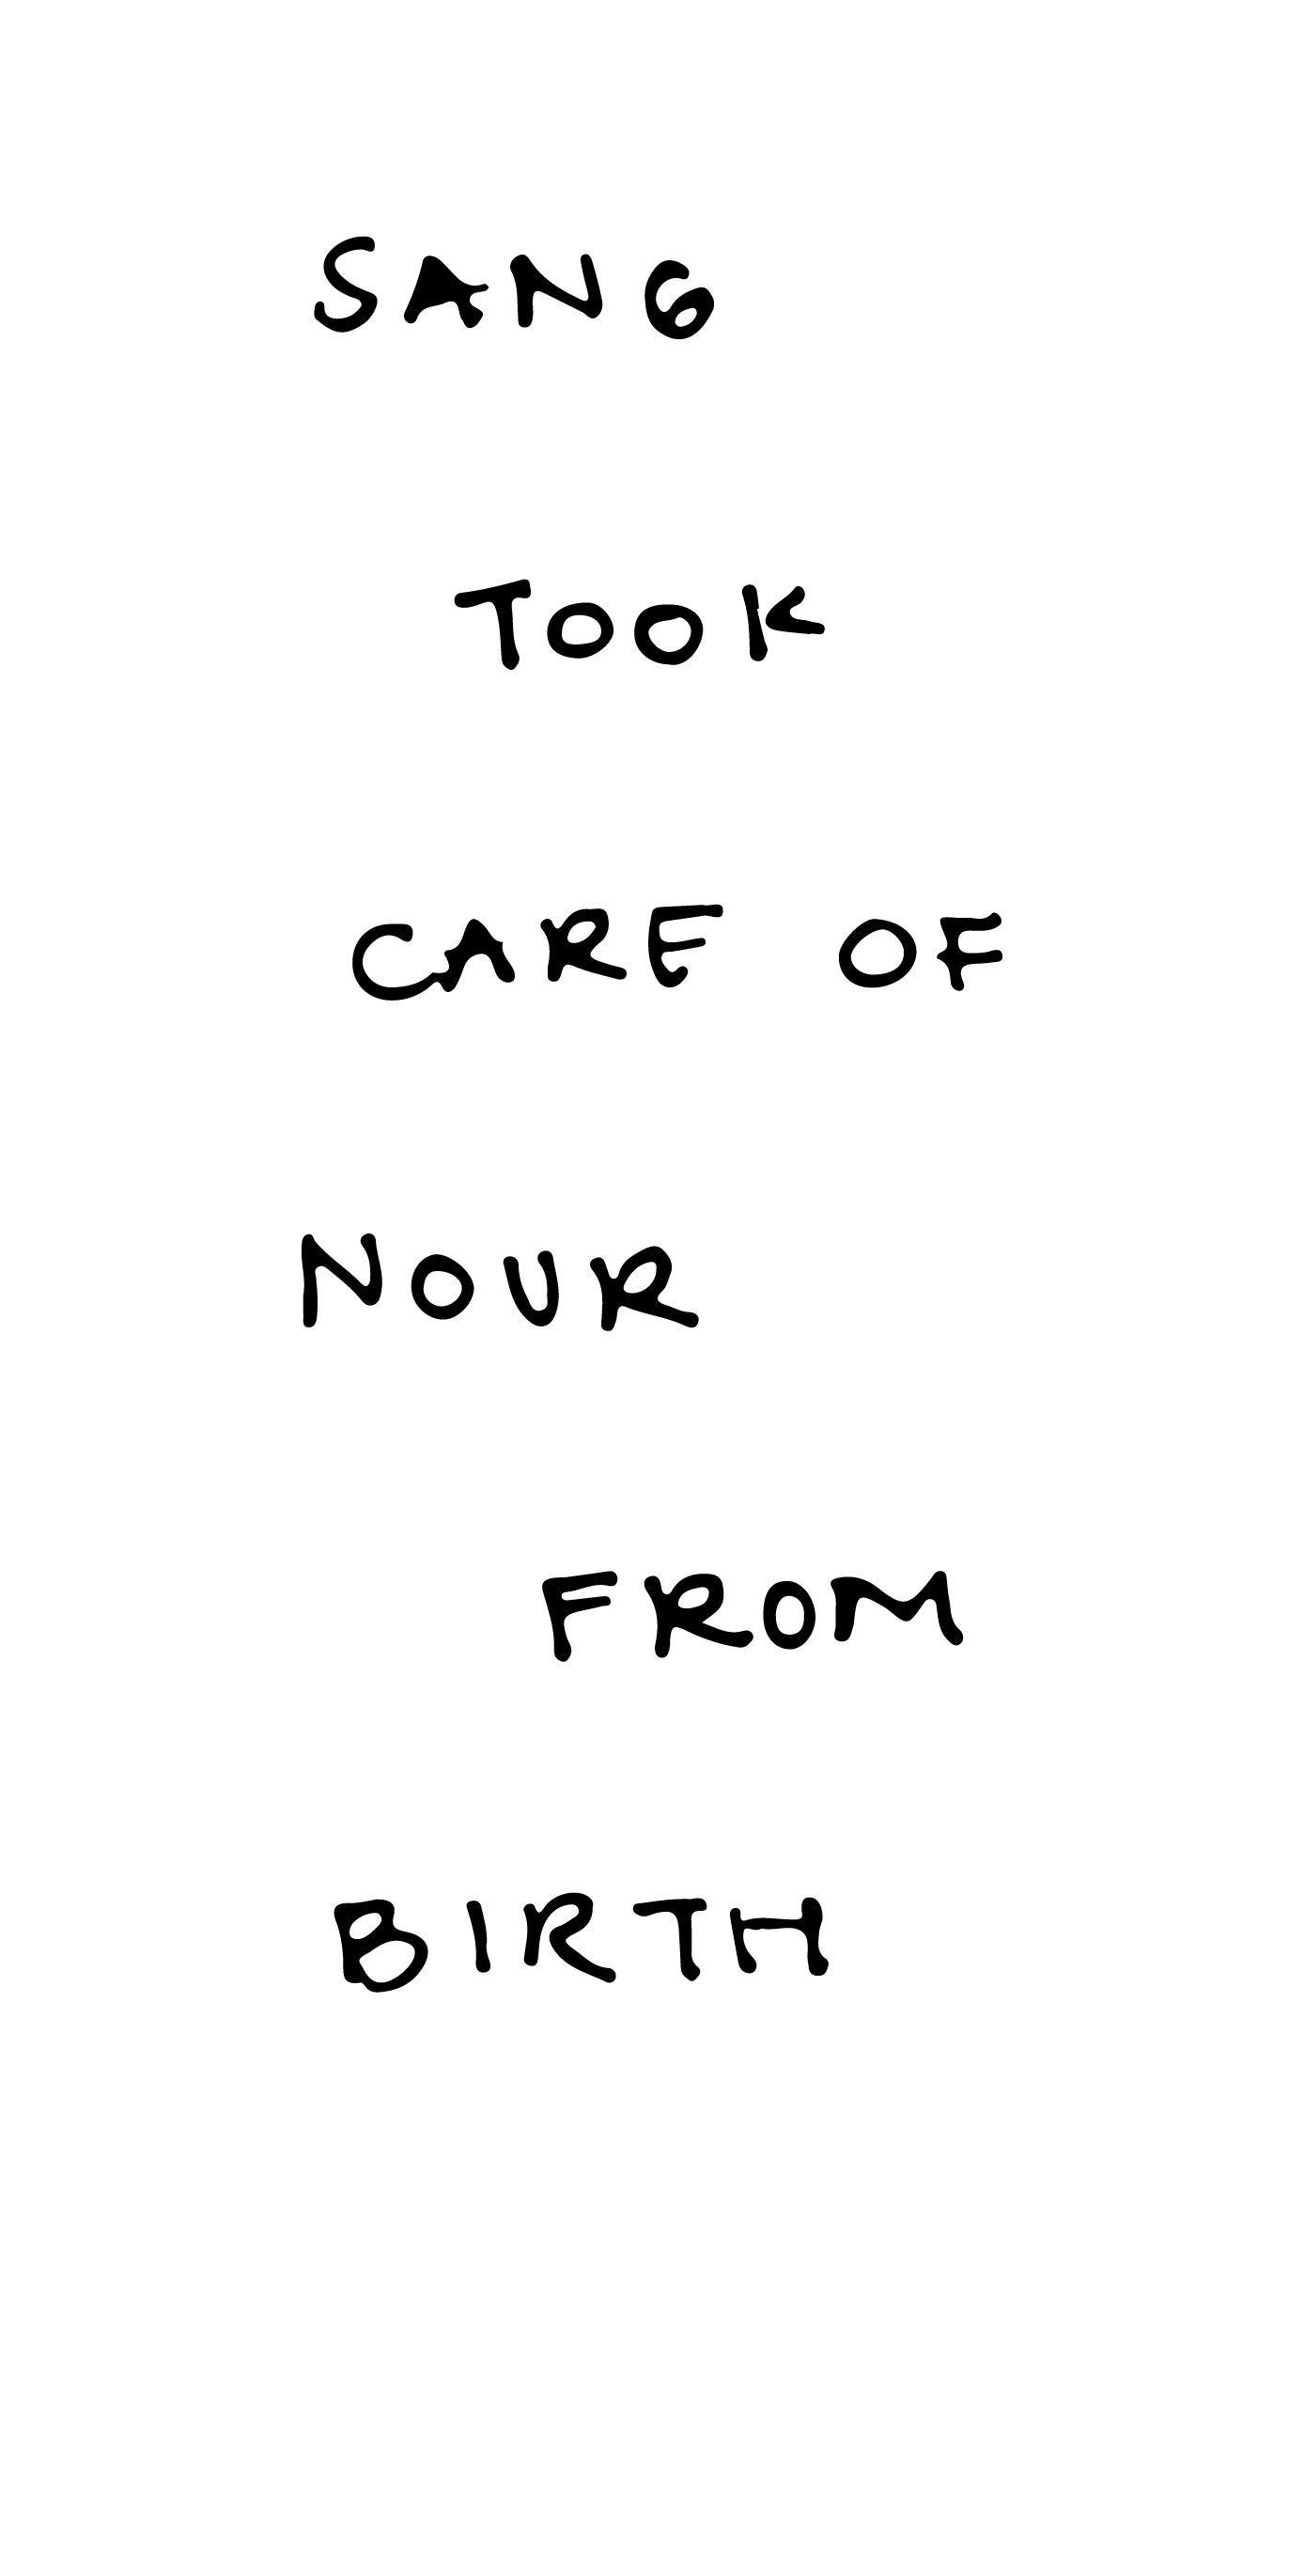 SANG
TOOK
CARE OF
NOUR
FROM
BIRTH